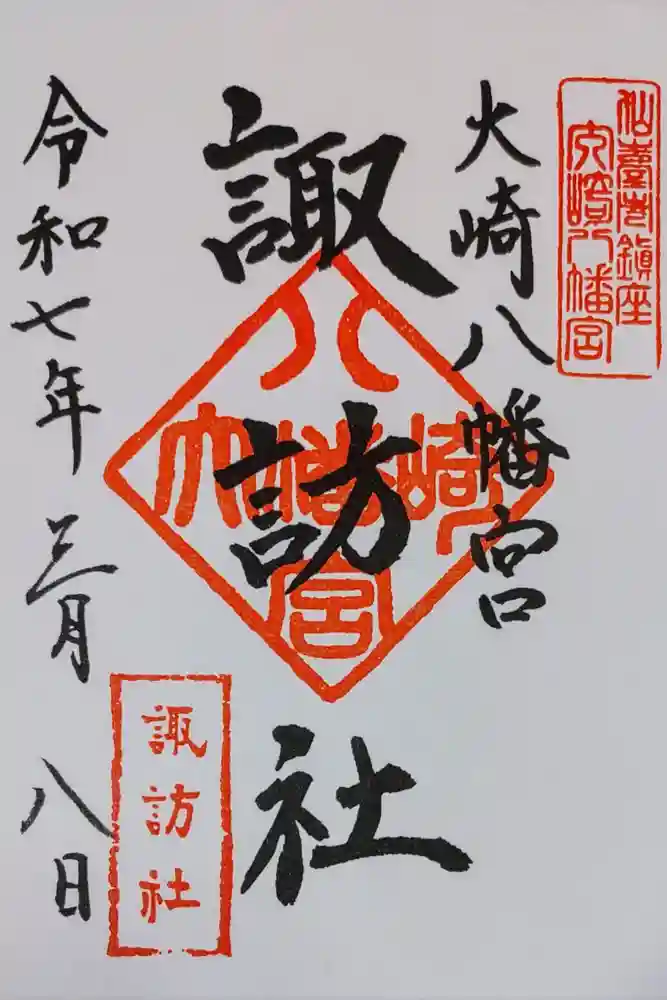 仙臺市鎮座
大崎八幡宮
大崎八幡宮
諏訪社
大崎八幡宮
令和七年三月八日
諏訪社